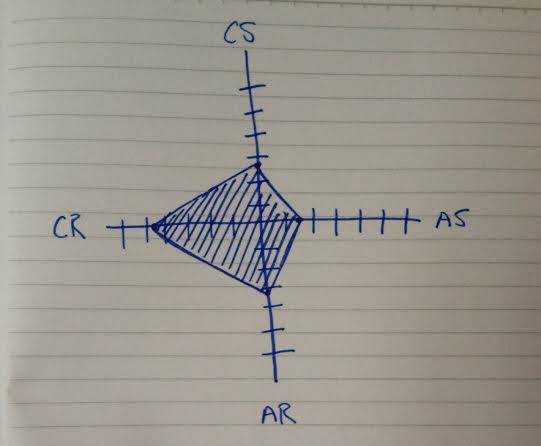 CS
CR
AS
AR